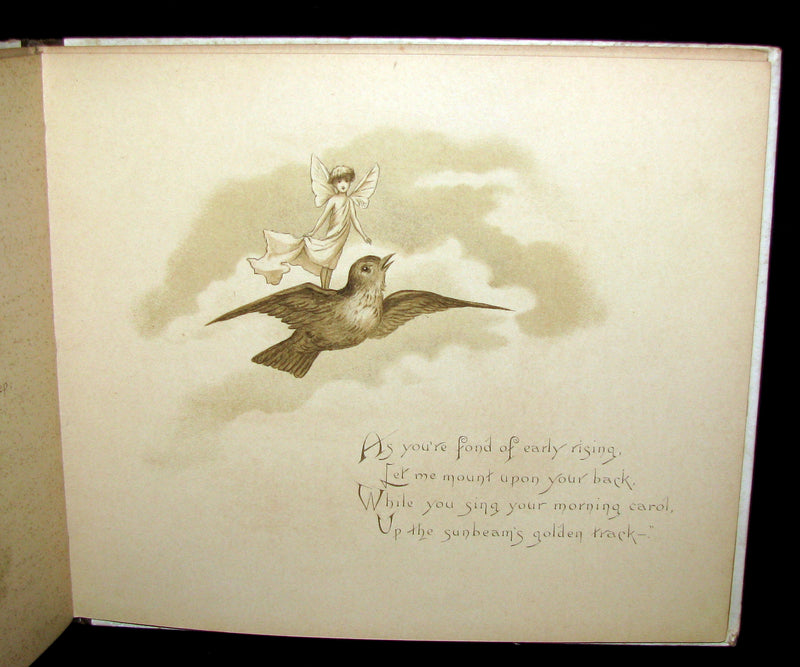 As you're fond of early rising,
Let me mount upon your back,
While you sing your morning carol,
Up the sunbeam's golden track—"